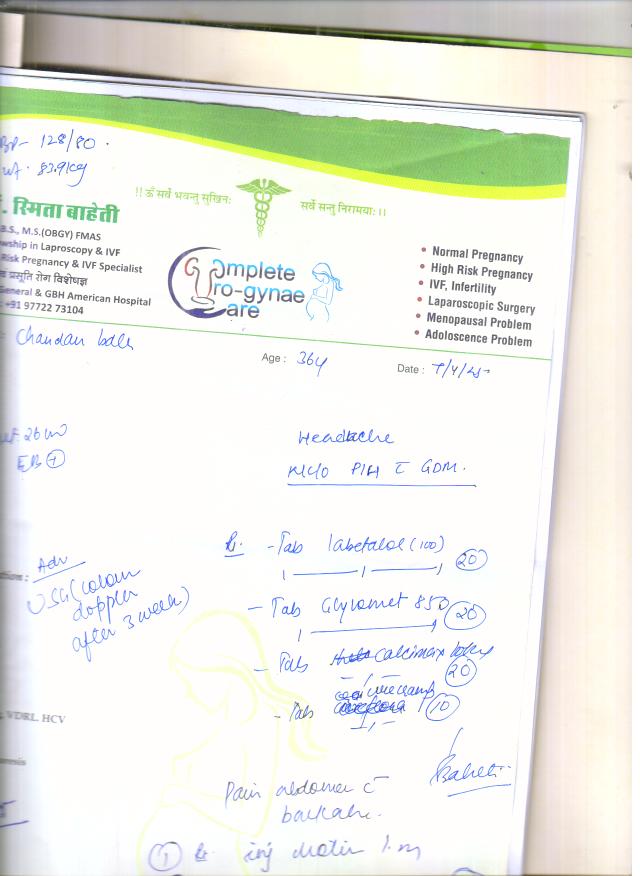 BP- 128/80.
wt. 83.9kg
!! ॐ सर्वे भवन्तु सुखिनः
सर्वे सन्तु निरामयाः ।।
. स्मिता बाहेती
B.S., M.S.(OBGY) FMAS
wship in Laproscopy & IVF
Risk Pregnancy & IVF Specialist
प्रसूति रोग विशेषज्ञ
General & GBH American Hospital
: +91 97722 73104
Complete
Uro-gynae
Care
• Normal Pregnancy
• High Risk Pregnancy
• IVF, Infertility
• Laparoscopic Surgery
• Menopausal Problem
• Adoloscence Problem
Chandan
Age : 36y
Date :
Headache
PIH c̄ GDM.
Adv
USG (colour
doppler
after 3 week)
Rx. - Tab labetalol (100)
20
- Tab Glycomet 850
20
- Tab calcimax
20
- Tab
10
VDRL. HCV
Baheti
Pain abdomen c̄
backache.
1 Rx inj